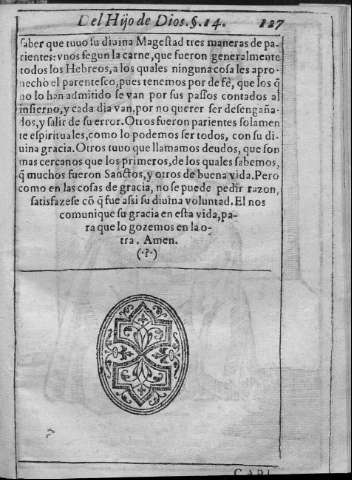 Del Hijo de Dios. §. 14. 127
saber que tuuo su diuina Magestad tres maneras de pa-
rientes: vnos segun la carne, que fueron generalmente
todos los Hebreos, a los quales ninguna cosa les apro-
uechò el parentesco, pues tenemos por de fê, que los q̃
no lo han admitido se van por sus passos contados al
infierno, y cada dia van, por no querer ser desengaña-
dos, y salir de su error. Otros fueron parientes solamen
te espirituales, como lo podemos ser todos, con su di-
uina gracia. Otros tuuo que llamamos deudos, que son
mas cercanos que los primeros, de los quales sabemos,
q̃ muchos fueron Sanctos, y otros de buena vida. Pero
como en las cosas de gracia, no se puede pedir razon,
satisfazese cõ q̃ fue assi su diuina voluntad. El nos
comunique su gracia en esta vida, pa-
ra que lo gozemos en la o-
tra. Amen.
(.?.)